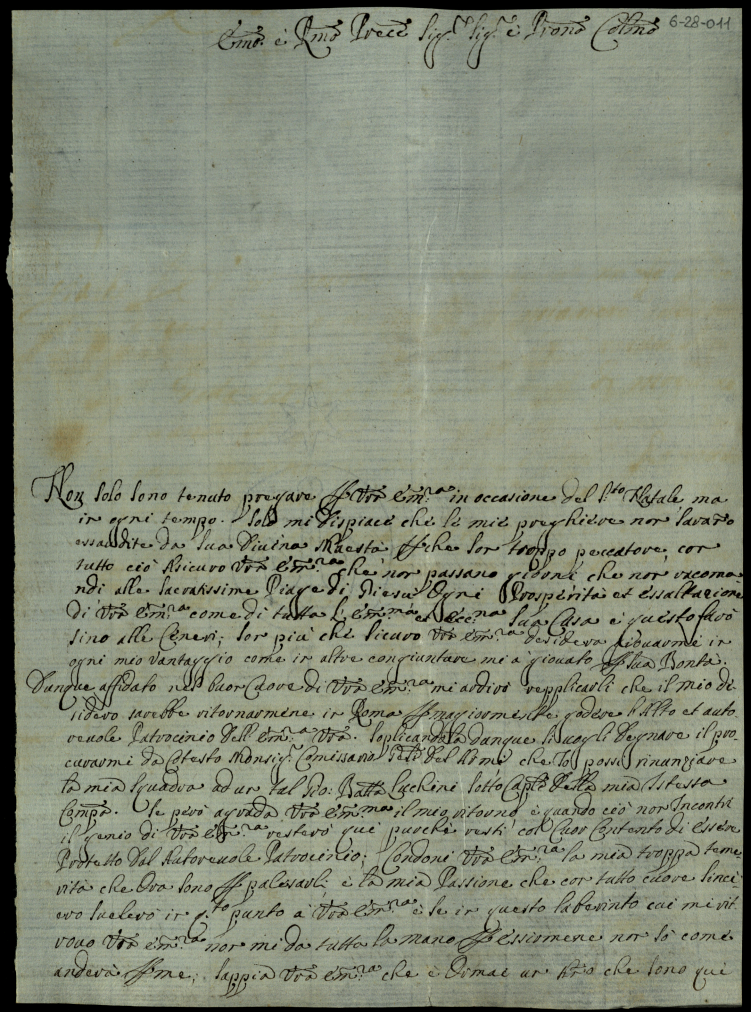 6-28-011
Em̃o: è Rm̃o Prẽce Sig.r Sig.r è Prõne Colm̃o
Non solo sono tenuto pregare ꝑ Vr̃a Em̃.za in occasione del S.to Natale, ma
in ogni tempo. Solo mi dispiace che le mie preghiere non sarañ̃o
essaudite da sua Divina Maestà ꝑ che son troppo peccatore, con
tutto ciò Assicuro Vr̃a Em̃.za che non passano giorni che non racoma
ndi alle Sacratissime Piage di Giesù Ogni Prosperità et essaltazione
di Vr̃a Em̃.za come di tutta L'Em̃.ma et Ecc.ma Sua Casa è questo farò
sino alle Ceneri; Son più che sicuro Vr̃a Em̃.za desidera giouarmi in
ogni mio vantaggio come in altre congiunture mi à giouato ꝑ Sua Bontà.
Dunque affidato nel buon Cuore di Vr̃a Em̃.za mi ardirò repplicarli che il mio de
siderio sarebbe ritornarmene in Roma ꝑ magiormente godere L'Alto et auto
reuole Patrocinio dell'Em̃.za Vr̃a. Soplicandola dunque si uogli degnare il pro
curarmi da Cotesto Monsig.r Comissario del Mare che Io possi rinunziare
la mia Squadra ad un tal Gio: Batta Luchini sotto Cap.le della mia Istessa
Comp.a. Se però agrada Vr̃a Em̃.za il mio ritorno, è quando ciò non Incontri
il genio di Vr̃a Em̃.za resterò qui purche resti col Cuor Contento di Essere
Protetto dal Autoreuole Patrocinio; Condoni Vr̃a Em̃.za la mia troppa teme
rità che Ora sono ꝑ palesarli è la mia Passione che con tutto cuore since
ro suelerò in q.to punto à Vr̃a Em̃.za è se in questo laberinto cui mi rit
rouo Vr̃a Em̃.za non mi da tutta la mano ꝑ Essirmene non sò come
anderà ꝑ me; sappia Vr̃a Em̃.za che è Ormai un que